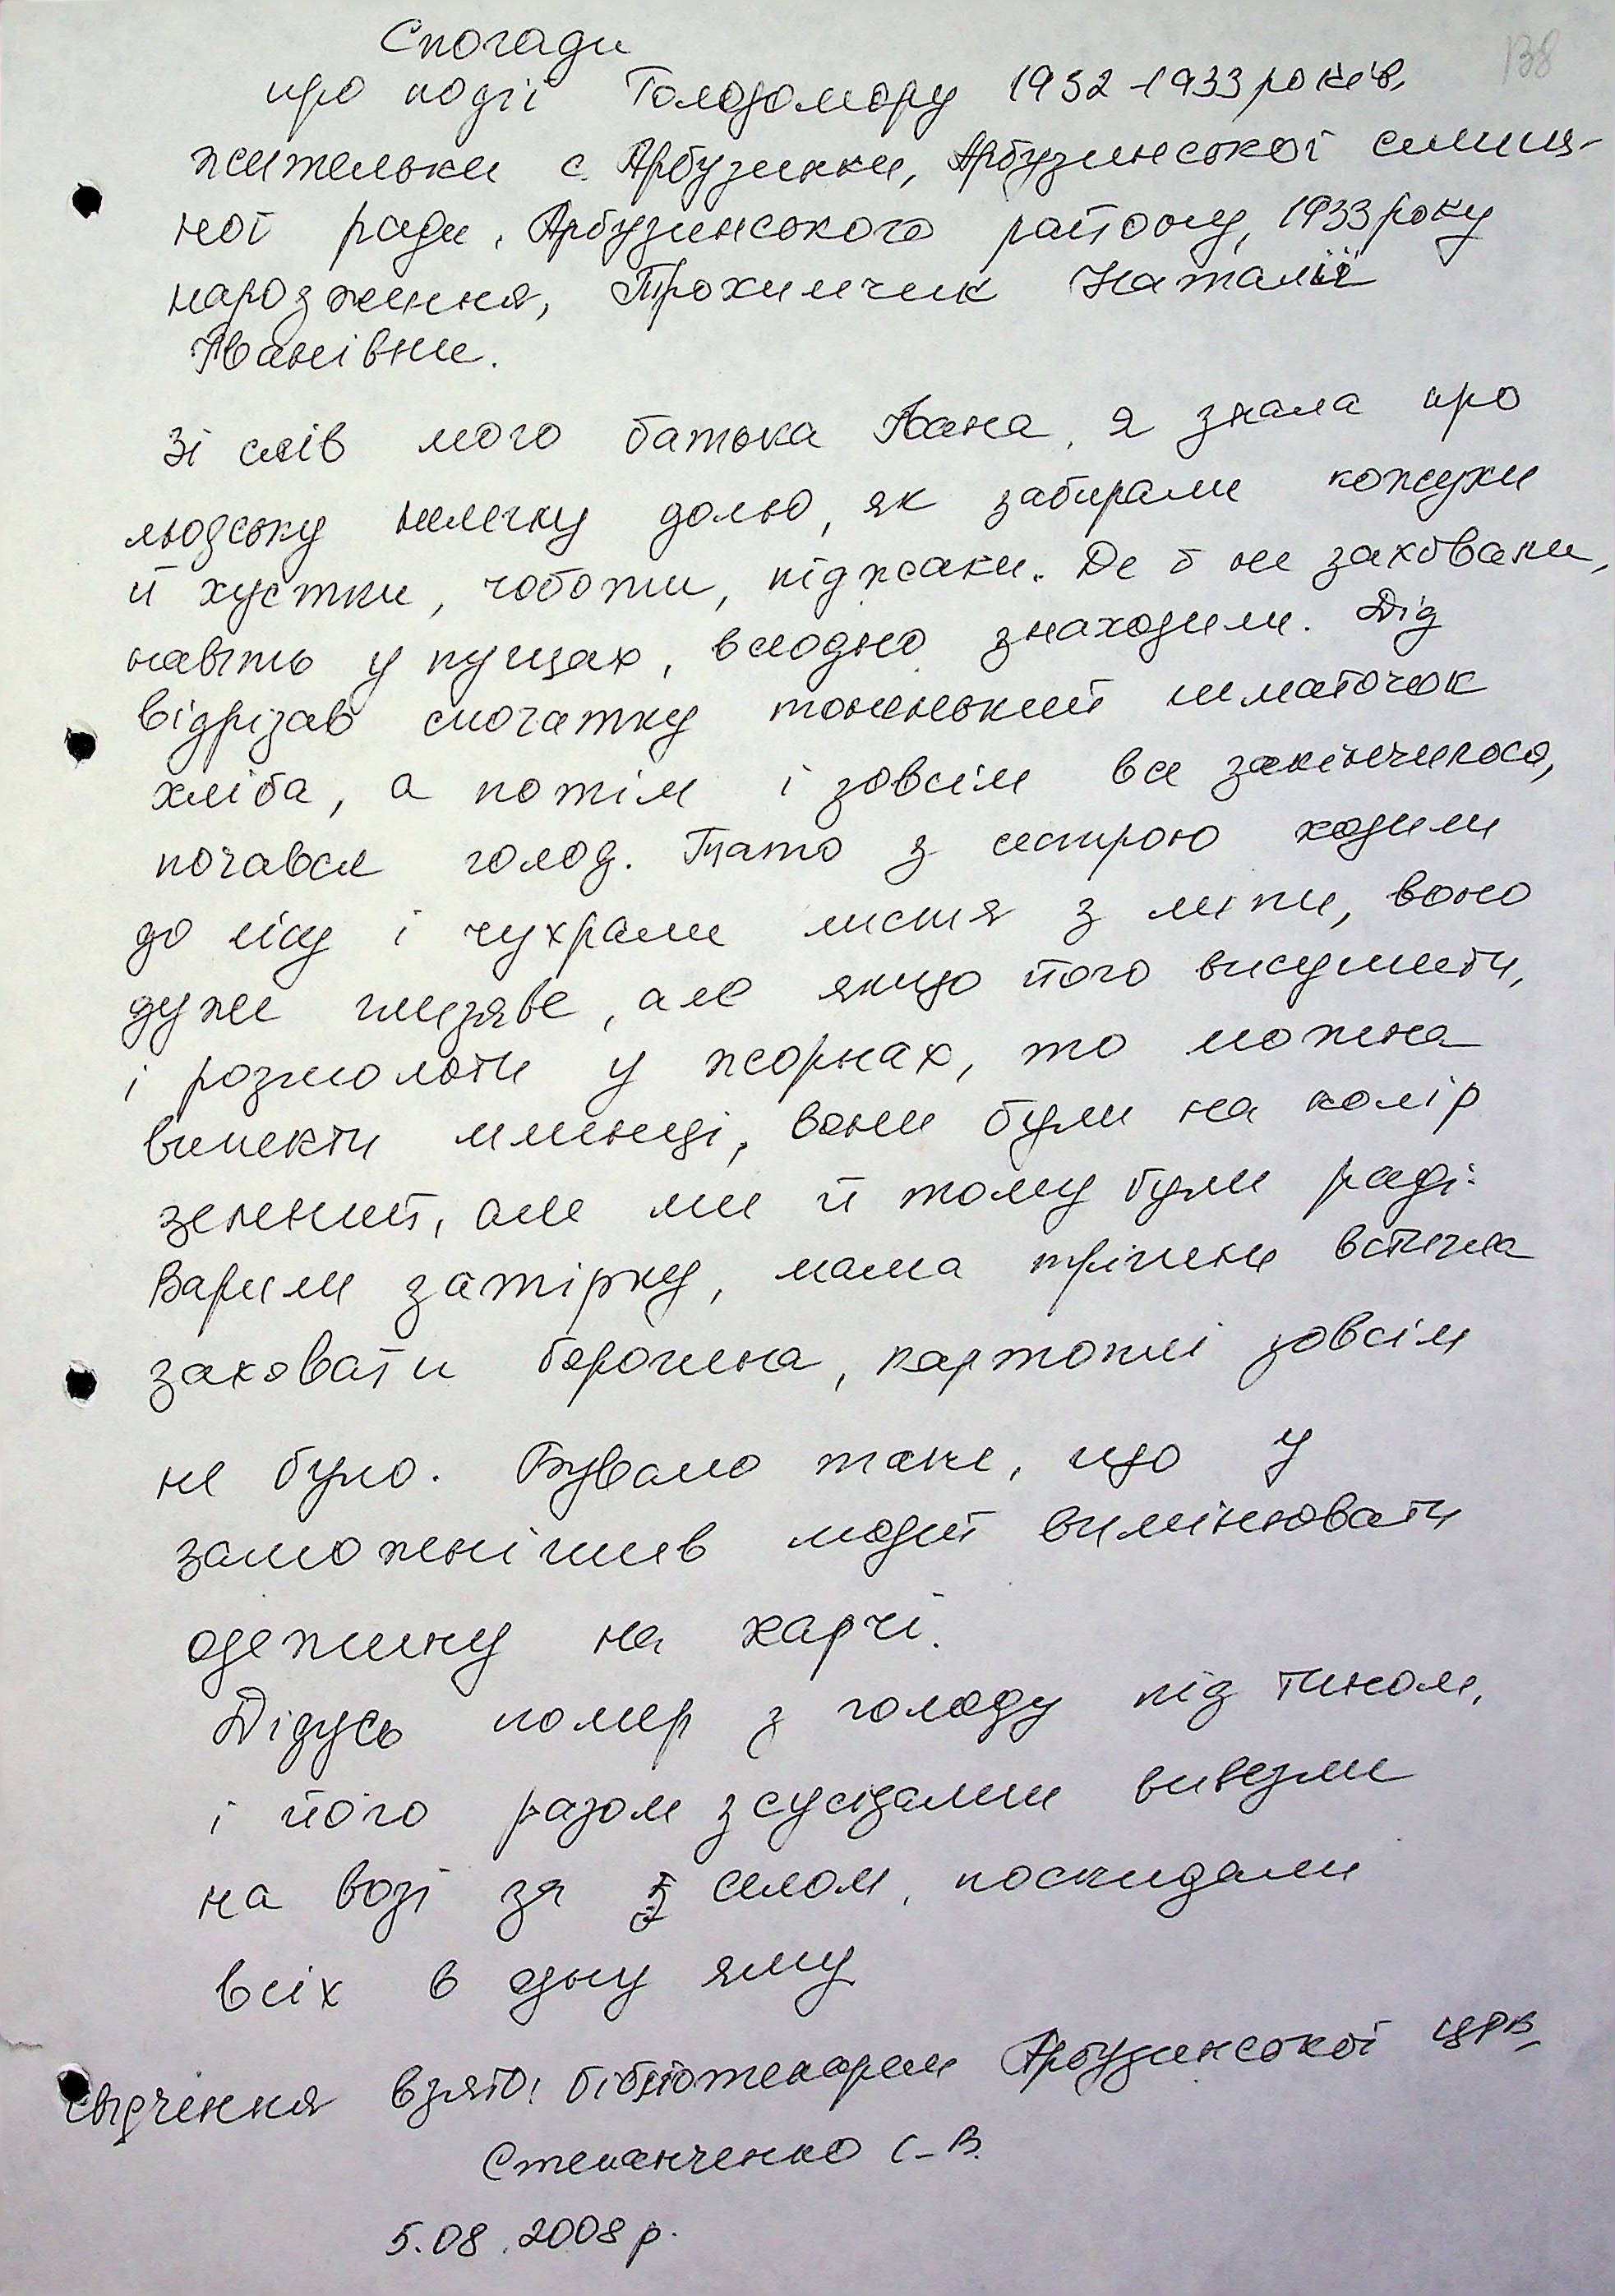 138
Спогади
про події Голодомору 1932-1933 років,
жительки с. Арбузинки, Арбузинської селищ-
ної ради, Арбузинського району, 1933 року
народження, Трохимчик Наталії
Іванівни.
Зі слів мого батька Івана, я знала про
людську нелегку долю, як забирали кожухи
й хустки, чоботи, піджаки. Де б не заховали,
навіть у пущах, всеодно знаходили. Дід
відрізав спочатку тоненький шматочок
хліба, а потім і зовсім все закінчилося,
почався голод. Тато з сестрою ходили
до лісу і чухрали листя з липи, воно
дуже глизяве, але якщо його висушити,
і розмолоти у жорнах, то можна
випекти млинці, вони були на колір
зелений, але ми й тому були раді.
Варили затірку, мама трішки встигла
заховати борошна, картоплі зовсім
не було. Бувало таке, що у
заможніших людей вимінювати
одежину на харчі.
Дідусь помер з голоду під тином,
і його разом з сусідами вивезли
на возі за селом, поскидали
всіх в одну яму
свідчення взято: бібліотекарем Арбузинської ЦРБ,
Степанченко С.В.
5.08.2008 р.